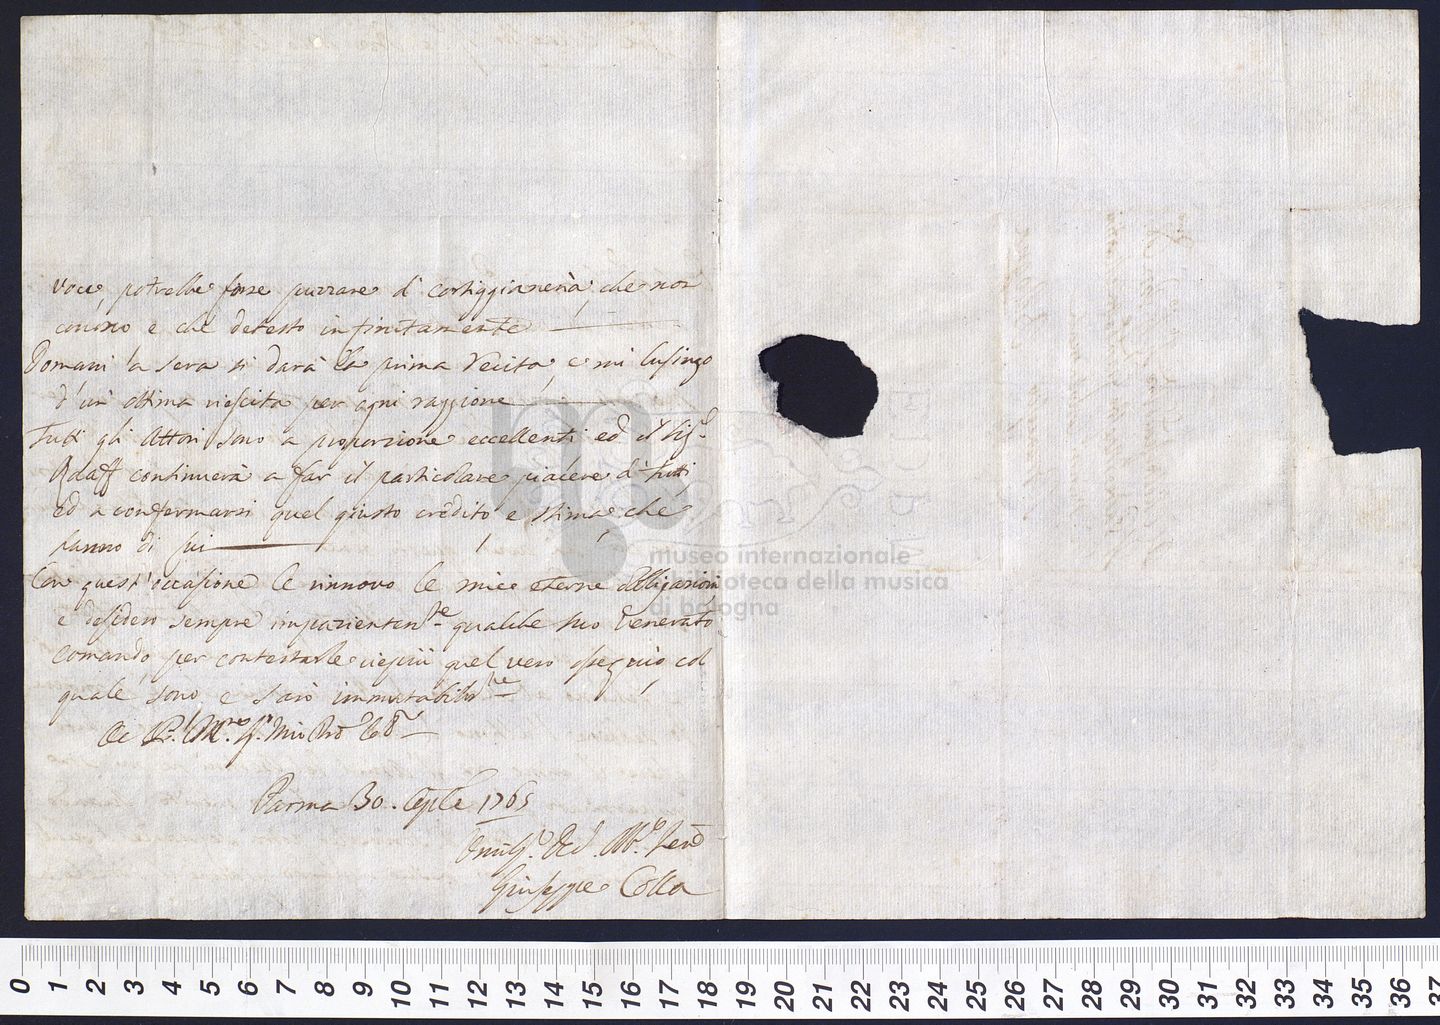 voce, potrebbe forse puzzare di cortiggianeria, che non
conosco e che detesto infinitamente
Domani la sera si darà la prima recita, e mi lusingo
d'un ottima riescita per ogni raggione
Tutti gli Attori sono a proporzione eccellenti ed il Sig.r
Raaff continuerà a far il particolare piacere di tutti,
ed a confermarsi quel giusto credito, e stima, che
hanno di lui
Con quest'occasione le rinnovo le mie eterne obbligazioni
e desidero sempre impazientem.te qualche suo venerato
comando, per contestarle viepiù quel vero ossequio, col
quale sono e sarò immutabilm.te
Parma 30. Aple 1765
Giuseppe Colla
museo internazionale
e biblioteca della musica
di bologna
0 1 2 3 4 5 6 7 8 9 10 11 12 13 14 15 16 17 18 19 20 21 22 23 24 25 26 27 28 29 30 31 32 33 34 35 36 37